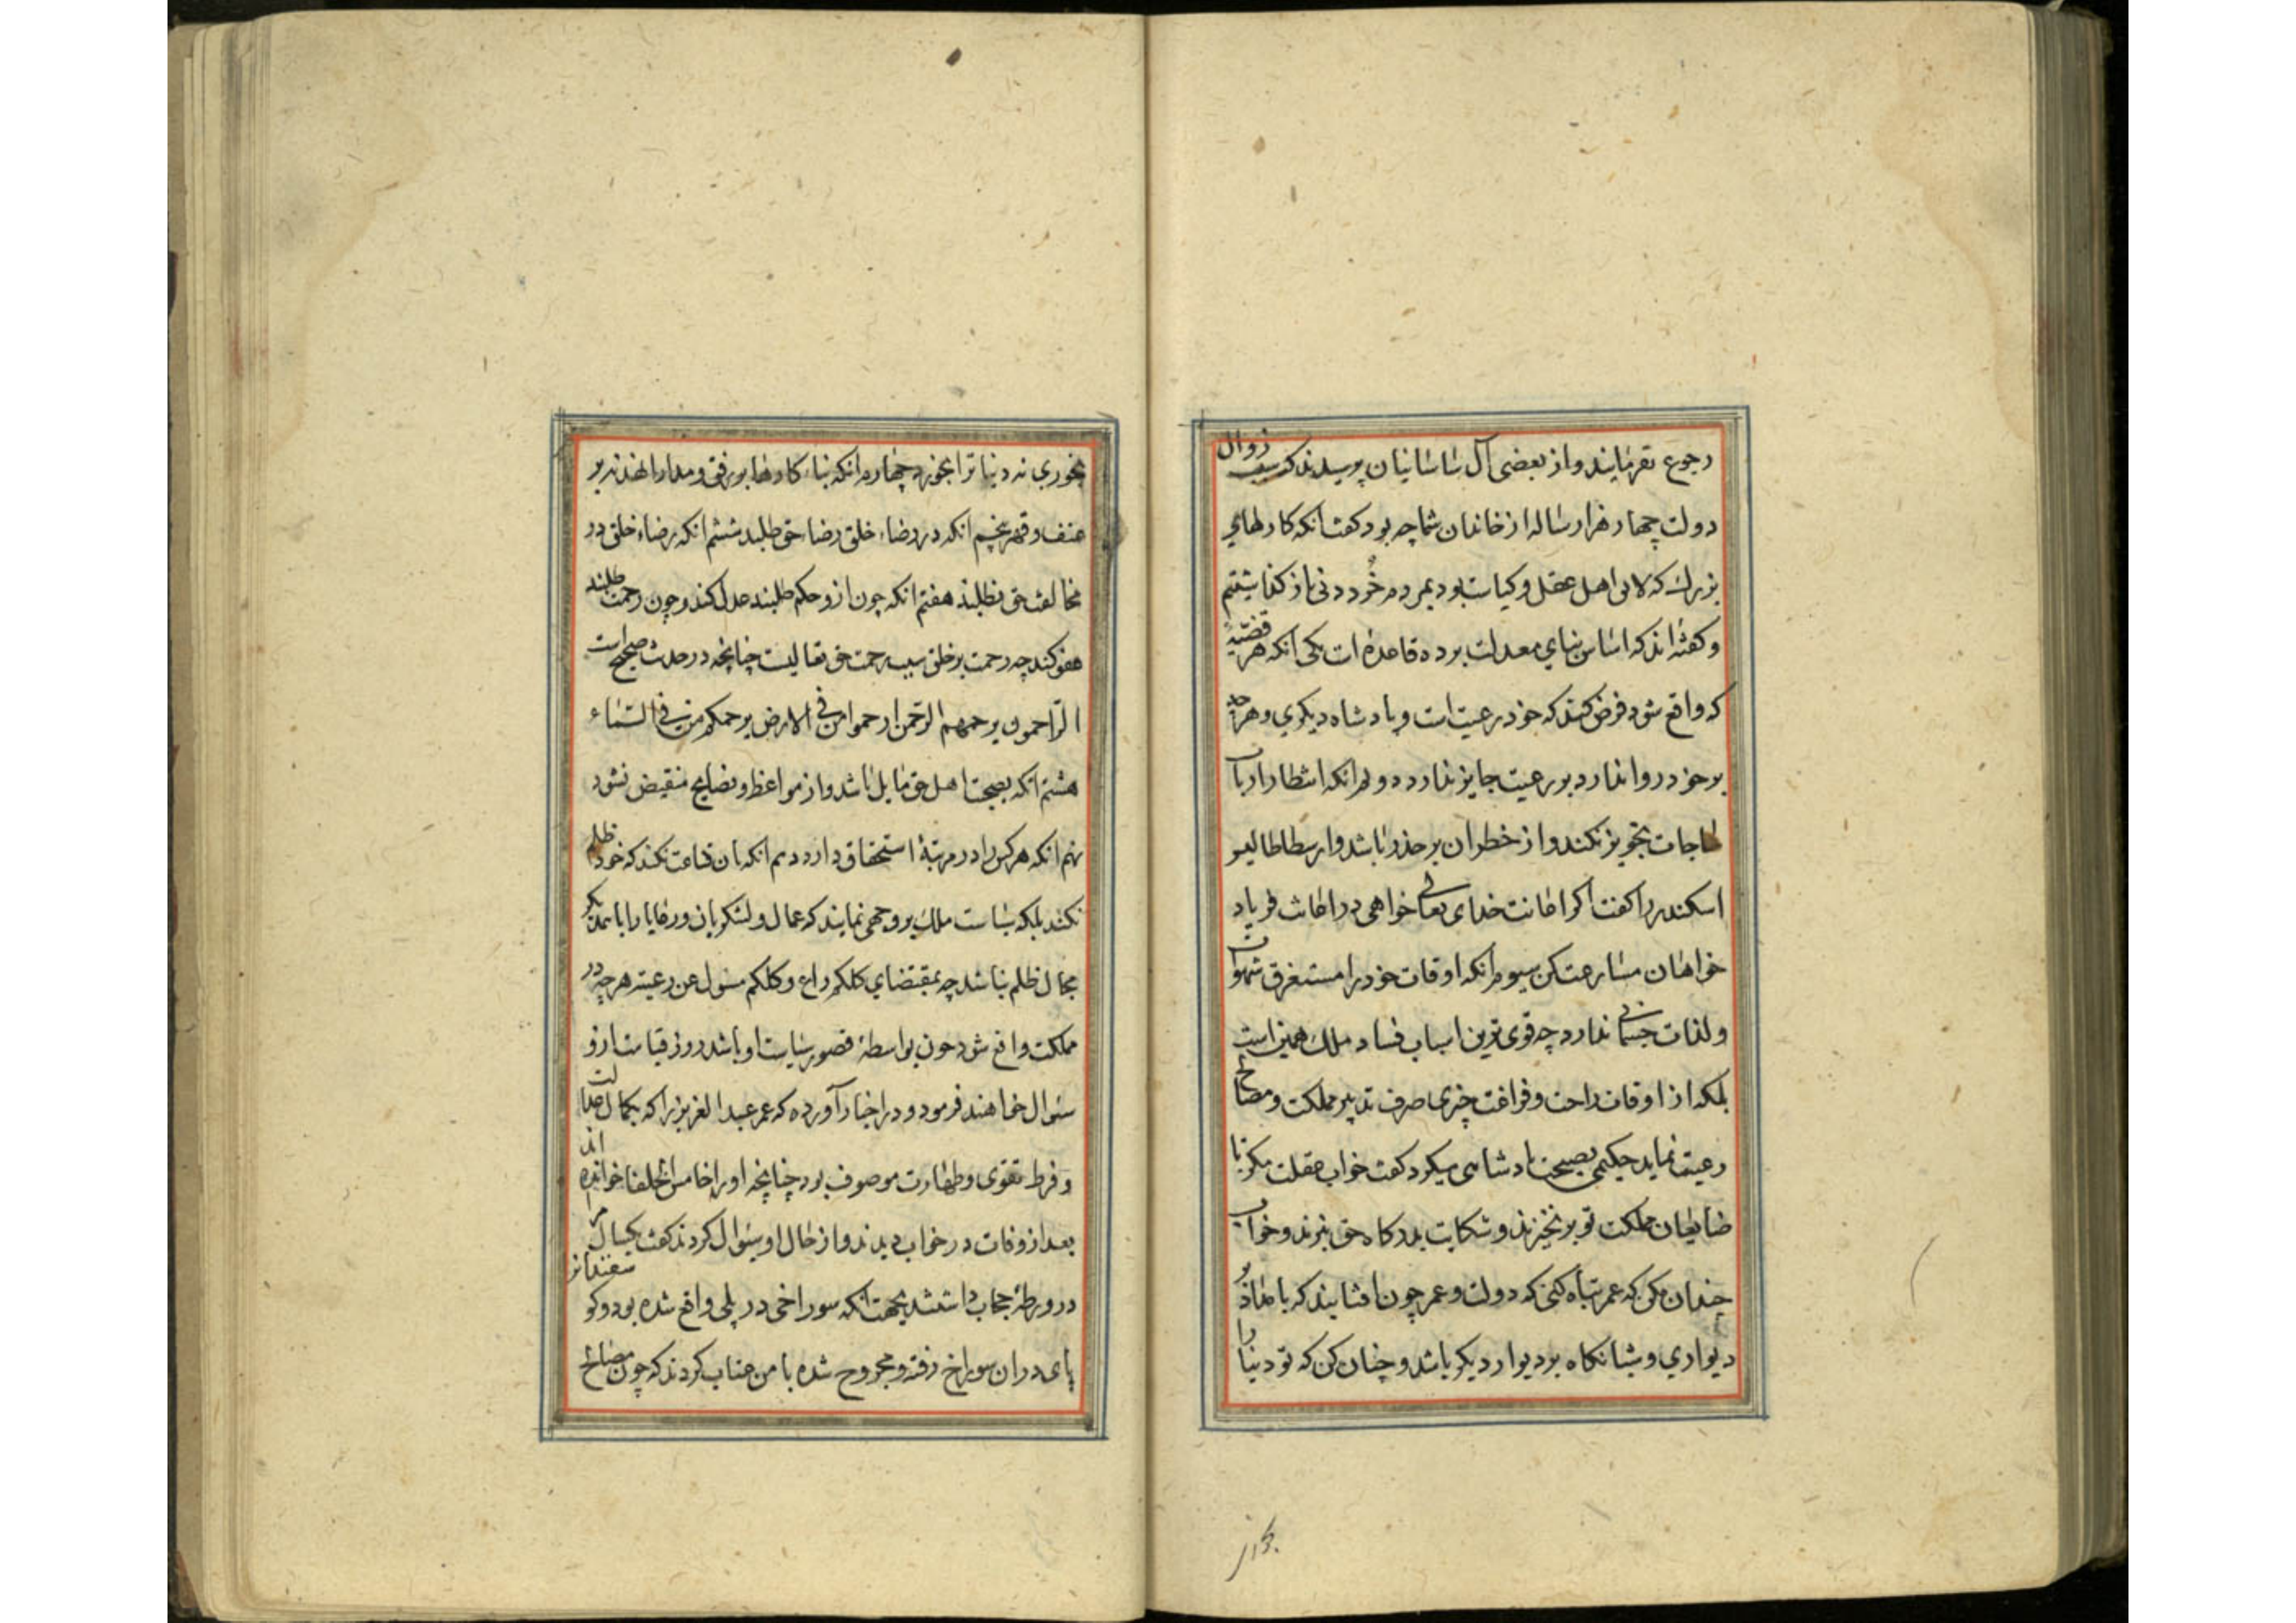 رجوع نفرمایند و از بعضی آل ساسانیان پرسیدند که سبب زوال
دولت چهار هزار ساله از خاندان شما چه بود گفت آنکه کارهای
بزرگ که لایق اهل عقل و کیاست بود بمردم خُرد دنی باز گذاشتیم
و گفته‌اند که اساس بنای معدلت برده قاعده است یکی آنکه هر قضیّهٔ
که واقع شود فرض کند که خود رعیت است و پادشاه دیگری و هرچه
بر خود روا ندارد بر رعیت جایز ندارد دوم آنکه انتظار ارباب
حاجات تجویز نکند و از خطر آن بر حذر باشد و ارسطاطالیس
اسکندر را گفت اگر اعانت خدای تعالی خواهی در اغاثت فریاد
خواهان مسارعت کن سیوم آنکه اوقات خود را مستغرق شهوات
و لذات جسمانی ندارد چه قوی ترین اسباب فساد ملک همین است
بلکه از اوقات راحت و فراغت چیزی صرف تدبیر مملکت و مصالح
رعیت نماید حکیمی نصیحت پادشاهی میکرد گفت خواب غفلت مکن تا
ضایعان مملکت تو بر نخیزند و شکایت بدرگاه حق نبرند و خواب
چندان مکن که عمر تباه کنی که دولت و عمر چون آفتابند که بامداد بر
دیواری و شبانگاه بر دیوار دیگر باشد و چنان کن که تو دنیا را
بخوری نه دنیا ترا بخورد چهارم آنکه بناء کارها بر رفق و مدارا نهد نه بر
عنف و قهر پنجم آنکه در رضاء خلق رضاء حق طلبد ششم آنکه رضاء خلق در
مخالفت حق نطلبد هفتم آنکه چون ازو حکم طلبند عدل کند و چون رحمت طلبند
عفو کند چه رحمت بر خلق سبب رحمت حق تعالیست چنانچه در حدیث صحیح است
الرّاحمون یرحمهم الرّحمن ارحموا من فی الارض یرحمکم من فی السّماء
هشتم آنکه بصحبت اهل حق مایل باشد و از مواعظ و نصایح منقبض نشود
نهم آنکه هر کس را در مرتبهٔ استحقاق دارد دهم آنکه بآن قناعت نکند که خود ظلم
نکند بلکه سیاست ملک بر وجهی نماید که عمال و لشکریان و رعایا را با یکدیگر
مجال ظلم نباشد چه بمقتضای کلکم راع و کلکم مسٔول عن رعیته هرچه در
مملکت واقع شود چون بواسطهٔ قصور سیاست او باشد روز قیامت ازو
سٔوال خواهند فرمود و در اخبار آورده که عمر عبد العزیز را که بکمال عدالت
و فرط تقوی و طهارت موصوف بود چنانچه او را خامس الخلفا خوانده اند
بعد از وفات در خواب دیدند و از حال او سٔوال کردند گفت یکسال مرا
در ورطهٔ حجاب داشتند بجهت آنکه سوراخی در پلی واقع شده بود و گوسفندانر
پای در آن سوراخ رفته و مجروح شده با من عتاب کردند که چون مصالح